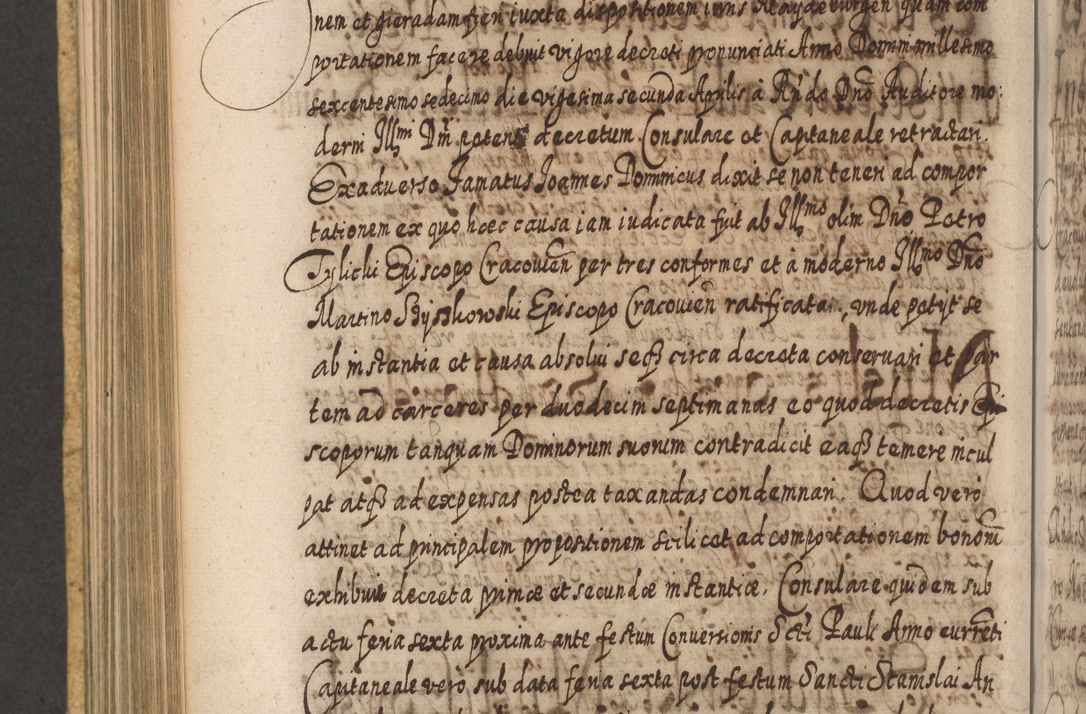 nem et gieradam fieri iuxta dispositionem iuris Maydeburgen quam com
portationem facere debuit vigore decreti pronunciati Anno Domini millesimo
sexcentesimo sedecimo die vigesima secunda Aprilis à Rñdo Dño Auditore mo:
derni Illmi Dñi petens decretum Consulare et Capitaneale retractari.
Ex adverso Famatus Joannes Dominicus dixit se non teneri ad compor
tationem ex quo hæc causa iam iudicata fuit ab Illmo olim Dño Petro
Tylicki Episcopo Cracovien̄ per tres conformes et à moderno Illmo Dño
Martino Szyszkowski Episcopo Cracovien̄ ratificata, vnde petijt se
ab instantia et causa absolui seqꝫ circa decreta conservari et par
tem ad carceres per duodecim septimanas eo quod decretis Epi
scoporum tanquam Dominorum suorum contradicit eaqꝫ temere incul
pat atqꝫ ad expensas postea taxandas condemnari. Quod verò
attinet ad principalem propositionem scilicet ad comportationem bonorū
exhibuit decreta primæ et secundæ instantiæ. Consulare quidem sub
actu feria sexta proxima ante festum Conversionis Scti Pauli Anno currēti
Capitaneale verò sub data feria sexta post festum Sancti Stanislai An